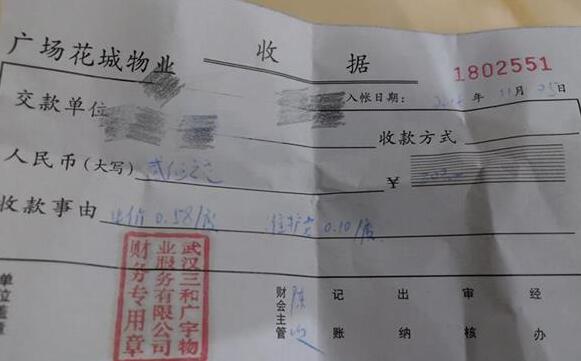 广场花城物业 收据 1802551
交款单位
入帐日期： 年 11月 25日
收款方式
人民币（大写） ¥
收款事由 电价0.58/度 维护费0.10/度
武汉三和广宇物
业服务有限公司
财务专用章
单位盖章 财会主管 陈 记账 出纳 审核 经办